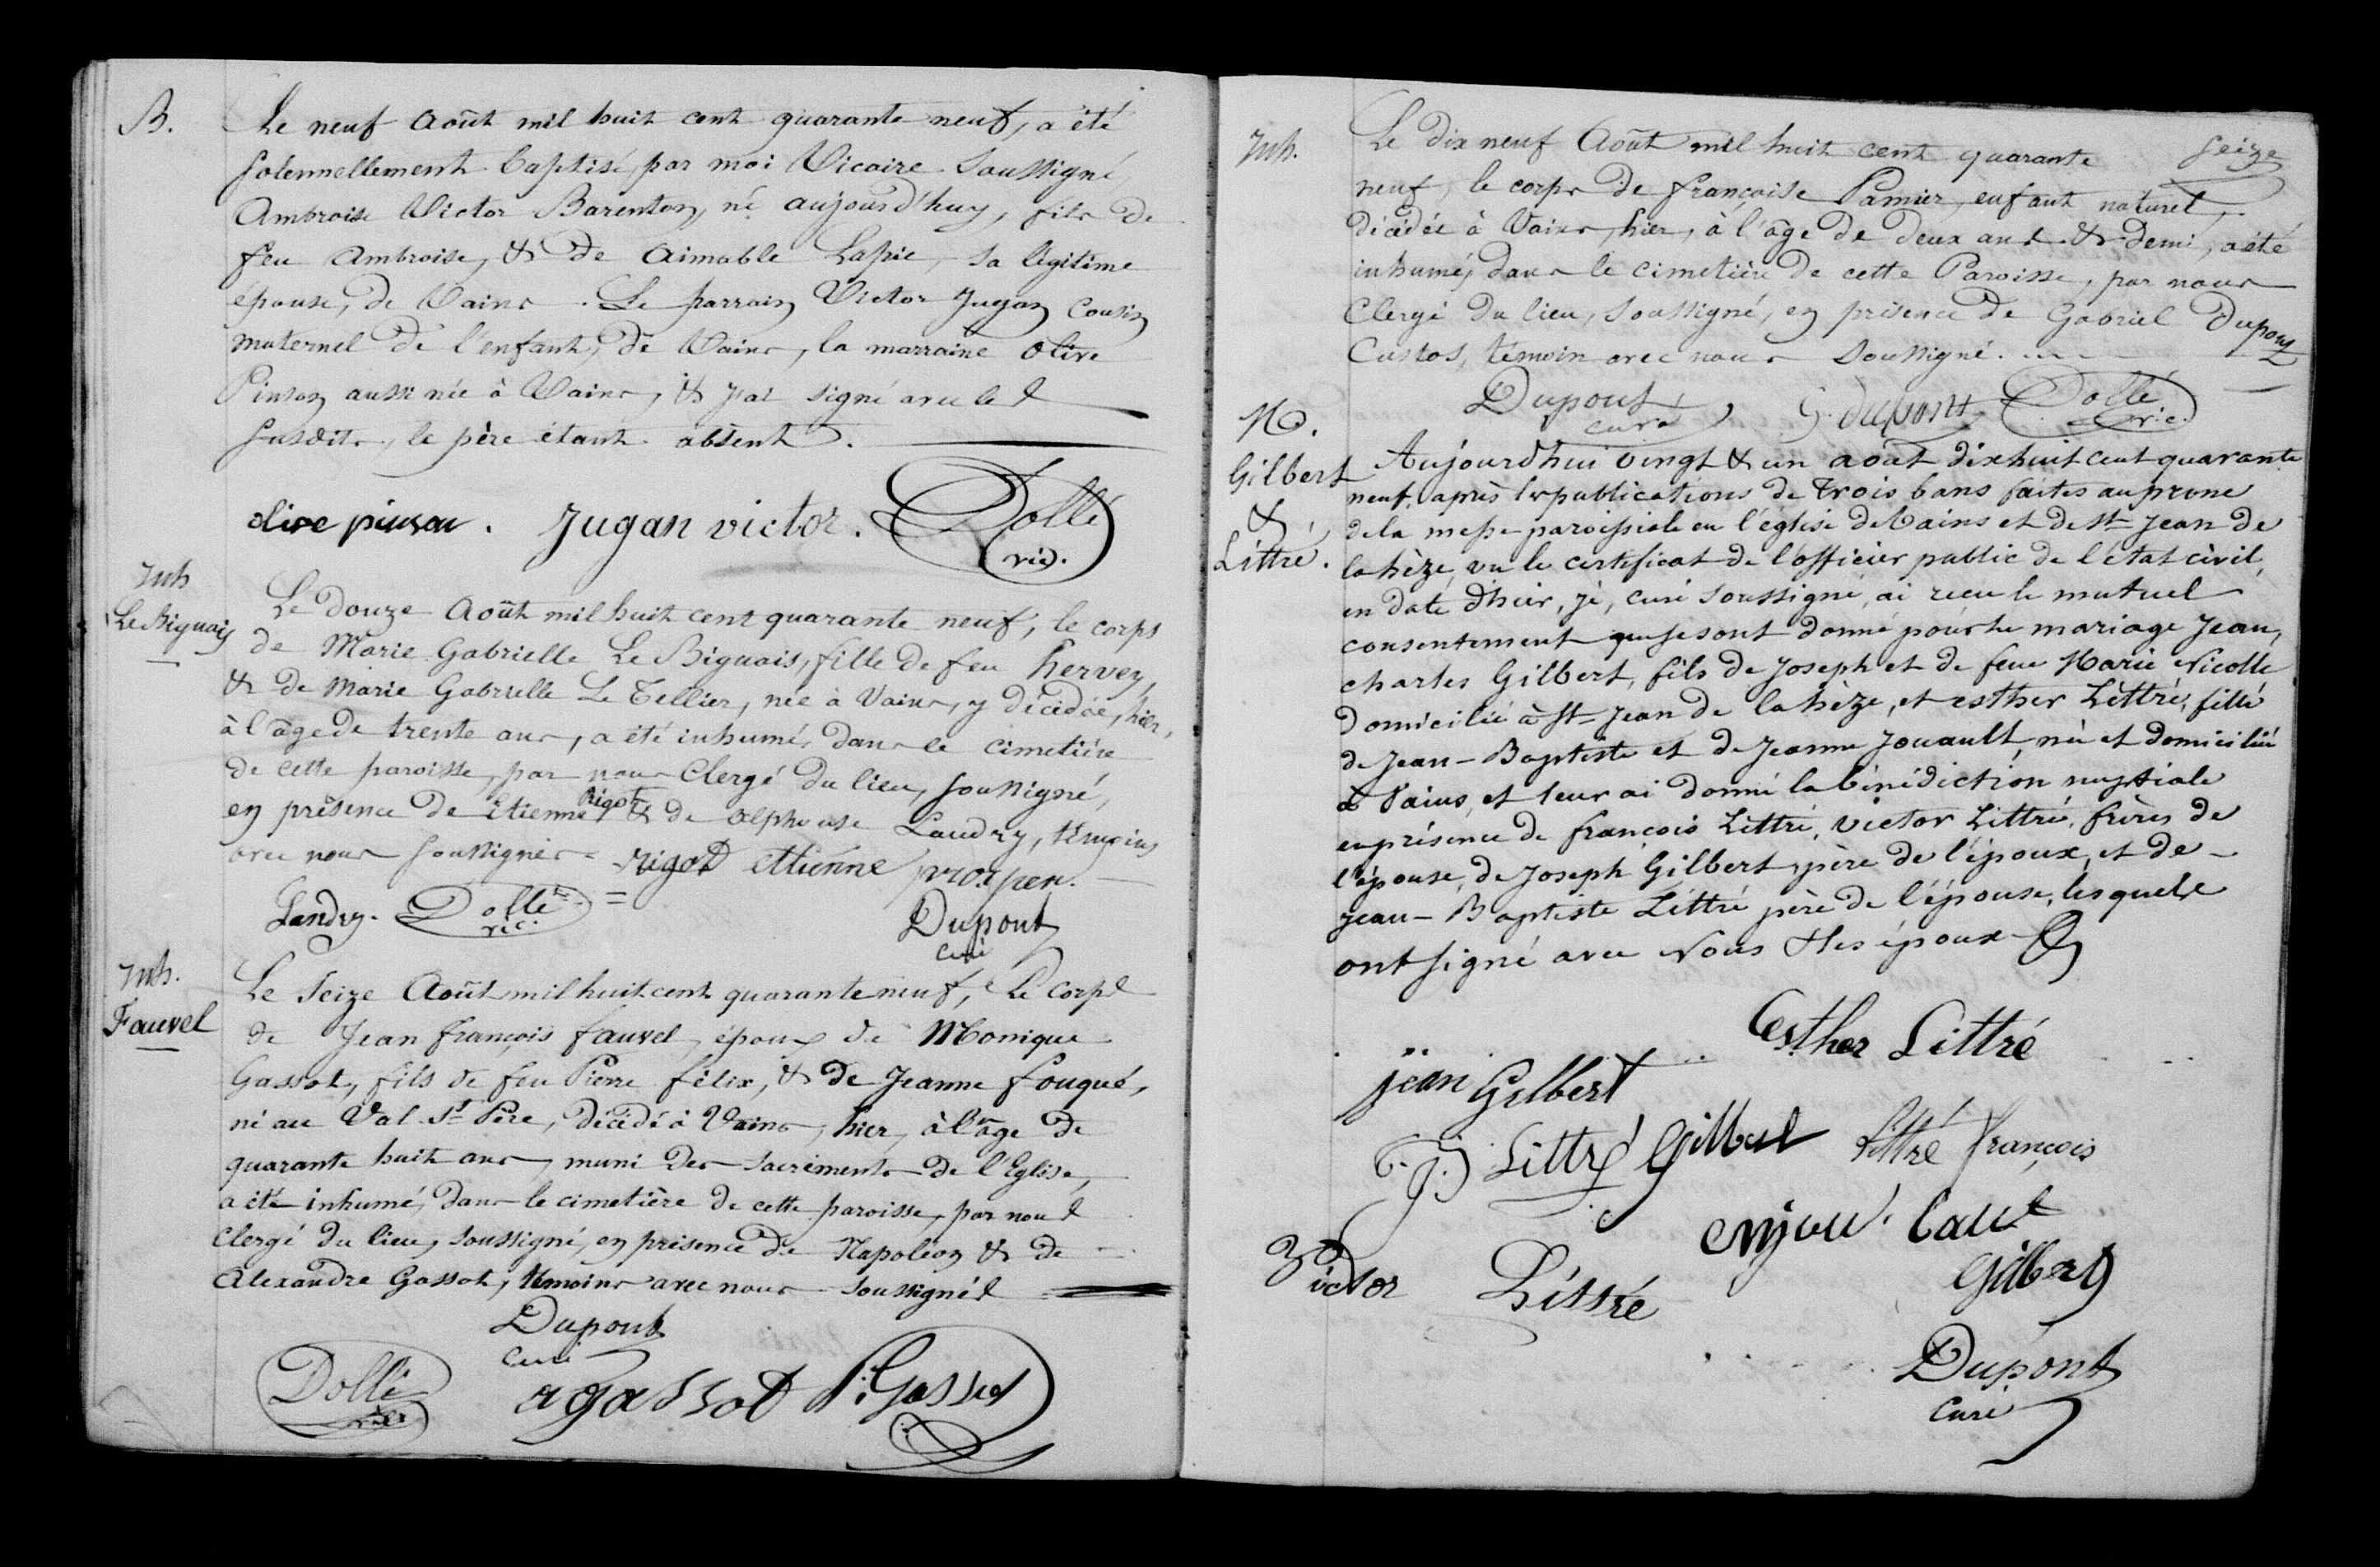 B.
Le neuf Août mil huit cent quarante neuf, a été
solennellement baptisé, par moi Vicaire soussigné,
Ambroise Victor Barenton, né aujourd'huy, fils de
feu Ambroise, & de Aimable Lapie, sa légitime
épouse, de Vains. Le parrain Victor Jugan cousin
maternel de l'enfant, de Vains, la marraine Olive
Pinson aussi née à Vains, & j'ai signé avec les
susdits, le père étant absent.
olive pinson. Jugan victor. Dollé
vic.
Inh
Le Biguais
Le douze Août mil huit cent quarante neuf, le corps
de Marie Gabrielle Le Biguais, fille de feu hervey,
& de Marie Gabrielle Le Tellier, née à Vains, y décédée, hier,
à l'âge de trente ans, a été inhumé, dans le cimetière
de cette paroisse, par nous Clergé du lieu, soussigné,
en présence de Etienne Rigot & de Alphonse Landry, témoins
avec nous soussignés = rigot ettienne
Landry. Dollé vic. =
Dupont
curé
Inh.
Fauvel
Le seize Août mil huit cent quarante neuf, Le corps
de Jean françois fauvel, époux de Monique
Gassot, fils de feu Pierre félix, & de Jeanne fouqué,
né au Val St Père, décédé à Vains, hier, à l'âge de
quarante huit ans, muni des sacrements de l'Eglise,
a été inhumé, dans le cimetière de cette paroisse, par nous
Clergé du lieu, soussigné, en présence de Napoléon & de
Alexandre Gassot, témoins avec nous soussignés
Dupont
curé
Dollé
vic. agassot Gassot
seize
Inh.
Le dix neuf Août mil huit cent quarante
neuf, le corps de françoise Pamier, enfant naturel,
décédée à Vains, hier, à l'âge de deux ans & demi, a été
inhumé, dans le cimetière de cette Paroisse, par nous
Clergé du lieu, soussigné, en présence de Gabriel Dupont
Custos, témoin avec nous soussigné.
Dupont
curé G. dupont Dollé
vic.
M.
Gilbert
&
Littré.
Aujourd'hui vingt & un août dix huit cent quarante
neuf, après les publications de trois bans faites au prone
de la messe paroissiale en l'église de Vains et de St Jean de
la hèze, vu le certificat de l'officier public de l'état civil,
en date d'hier, je, curé soussigné, ai recu le mutuel
consentement que se sont donné pour le mariage Jean,
charles Gilbert, fils de Joseph et de feue Marie Nicolle
domicilié à St Jean de la hèze, et esther Littré, fille
de Jean-Baptiste et de Jeanne Jouault, née et domiciliée
à Vains, et leur ai donné la bénédiction nuptiale
en présence de françois Littré, victor Littré, frères de
l'épouse, de Joseph Gilbert, père de l'époux, et de
Jean-Baptiste Littré père de l'épouse, lesquels
ont signé avec Nous & les époux
esther Littré
jean Gilbert
Littré Gilbert Littré françois
Victor Littré
Gilbert
Dupont
Curé